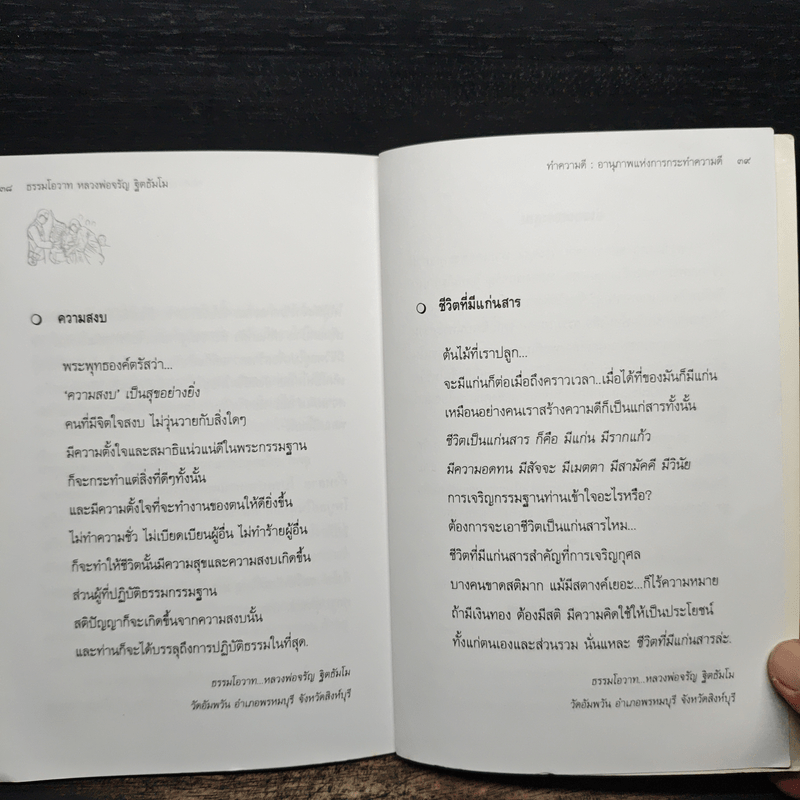 ๓๘ ธรรมโอวาท หลวงพ่อจรัญ ฐิตธัมโม
ความสงบ
พระพุทธองค์ตรัสว่า...
‘ความสงบ’ เป็นสุขอย่างยิ่ง
คนที่มีจิตใจสงบ ไม่วุ่นวายกับสิ่งใดๆ
มีความตั้งใจและสมาธิแน่วแน่ดีในพระกรรมฐาน
ก็จะกระทำแต่สิ่งที่ดีๆทั้งนั้น
และมีความตั้งใจที่จะทำงานของตนให้ดียิ่งขึ้น
ไม่ทำความชั่ว ไม่เบียดเบียนผู้อื่น ไม่ทำร้ายผู้อื่น
ก็จะทำให้ชีวิตนั้นมีความสุขและความสงบเกิดขึ้น
ส่วนผู้ที่ปฏิบัติธรรมกรรมฐาน
สติปัญญาก็จะเกิดขึ้นจากความสงบนั้น
และท่านก็จะได้บรรลุถึงการปฏิบัติธรรมในที่สุด.
ธรรมโอวาท...หลวงพ่อจรัญ ฐิตธัมโม
วัดอัมพวัน อำเภอพรหมบุรี จังหวัดสิงห์บุรี
ทำความดี : อานุภาพแห่งการกระทำความดี ๓๙
ชีวิตที่มีแก่นสาร
ต้นไม้ที่เราปลูก...
จะมีแก่นก็ต่อเมื่อถึงคราวเวลา..เมื่อได้ที่ของมันก็มีแก่น
เหมือนอย่างคนเราสร้างความดีก็เป็นแก่สารทั้งนั้น
ชีวิตเป็นแก่นสาร ก็คือ มีแก่น มีรากแก้ว
มีความอดทน มีสัจจะ มีเมตตา มีสามัคคี มีวินัย
การเจริญกรรมฐานท่านเข้าใจอะไรหรือ?
ต้องการจะเอาชีวิตเป็นแก่นสารไหม...
ชีวิตที่มีแก่นสารสำคัญที่การเจริญกุศล
บางคนขาดสติมาก แม้มีสตางค์เยอะ...ก็ไร้ความหมาย
ถ้ามีเงินทอง ต้องมีสติ มีความคิดใช้ให้เป็นประโยชน์
ทั้งแก่ตนเองและส่วนรวม นั่นแหละ ชีวิตที่มีแก่นสารล่ะ.
ธรรมโอวาท...หลวงพ่อจรัญ ฐิตธัมโม
วัดอัมพวัน อำเภอพรหมบุรี จังหวัดสิงห์บุรี